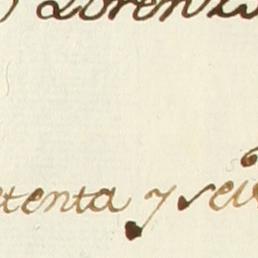 Lorenzo
etenta y seis